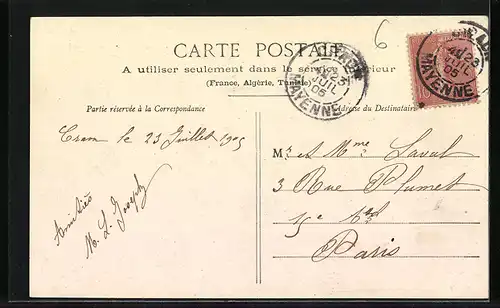 CARTE POSTALE
A utiliser seulement dans le service intérieur
(France, Algérie, Tunisie)
6
MAYENNE
JUIL
05
MAYENNE
JUIL
05
Partie réservée à la Correspondance
Adresse du Destinataire
le 23 Juillet 1905
Amitiés
M. L. Joseph
Mr et Mme Laval
3 Rue Plumet
15e
Paris